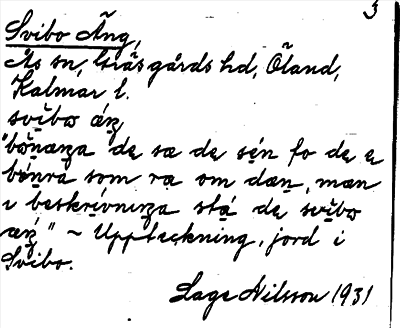 3
Svibo Äng,
Ås sn, Gräsgårds hd, Öland,
Kalmar l.
svibɷ áŋ
"bönæŋa de sæ de sén fo de e
bönra som ra om dæn, mæn
ı beskrívnıŋa stá de svibɷ
æŋ" ~ Uppteckning, jord i
Svibo.
Lage Nilsson 1931